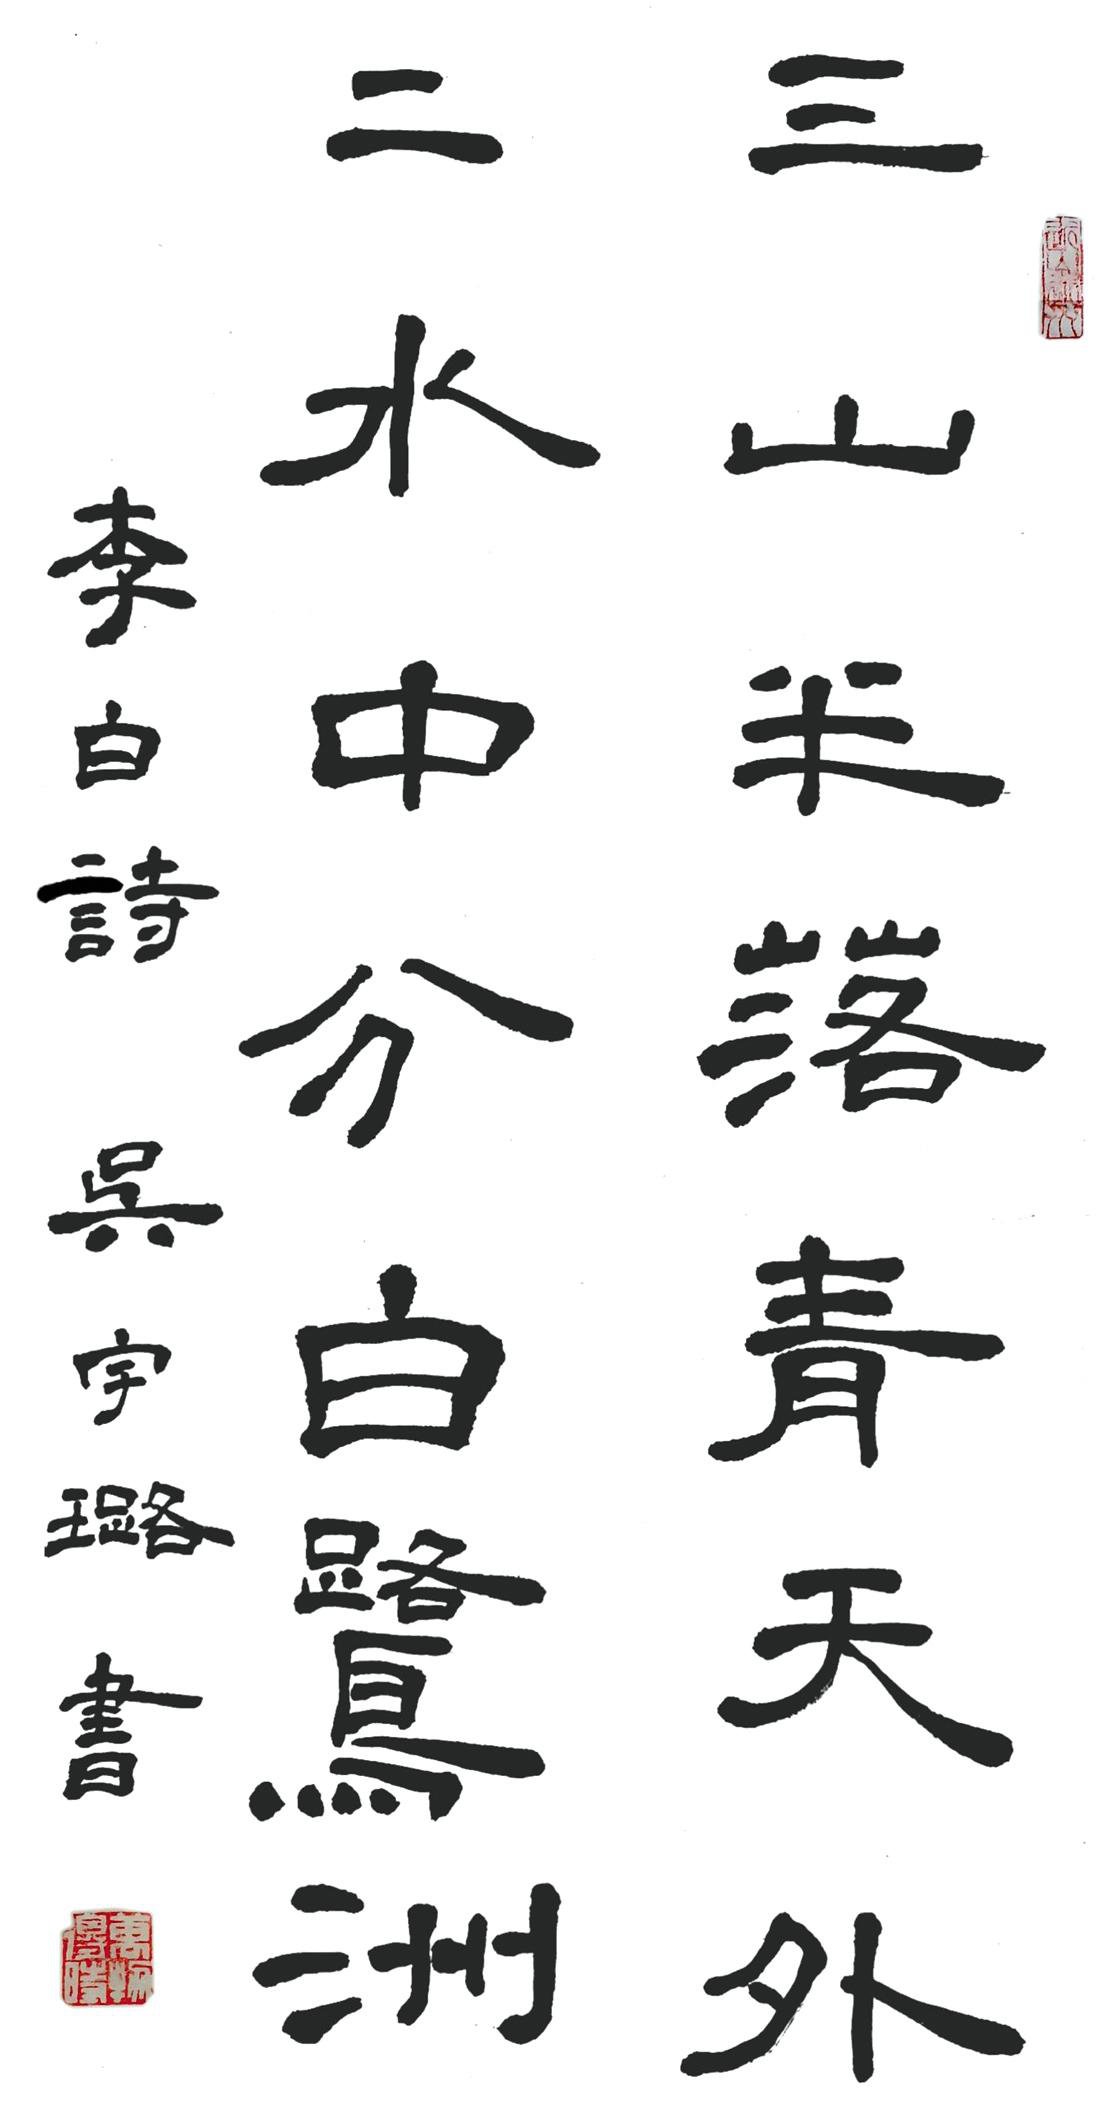 三山半落青天外
二水中分白鷺洲
李白詩 吳宇璐書